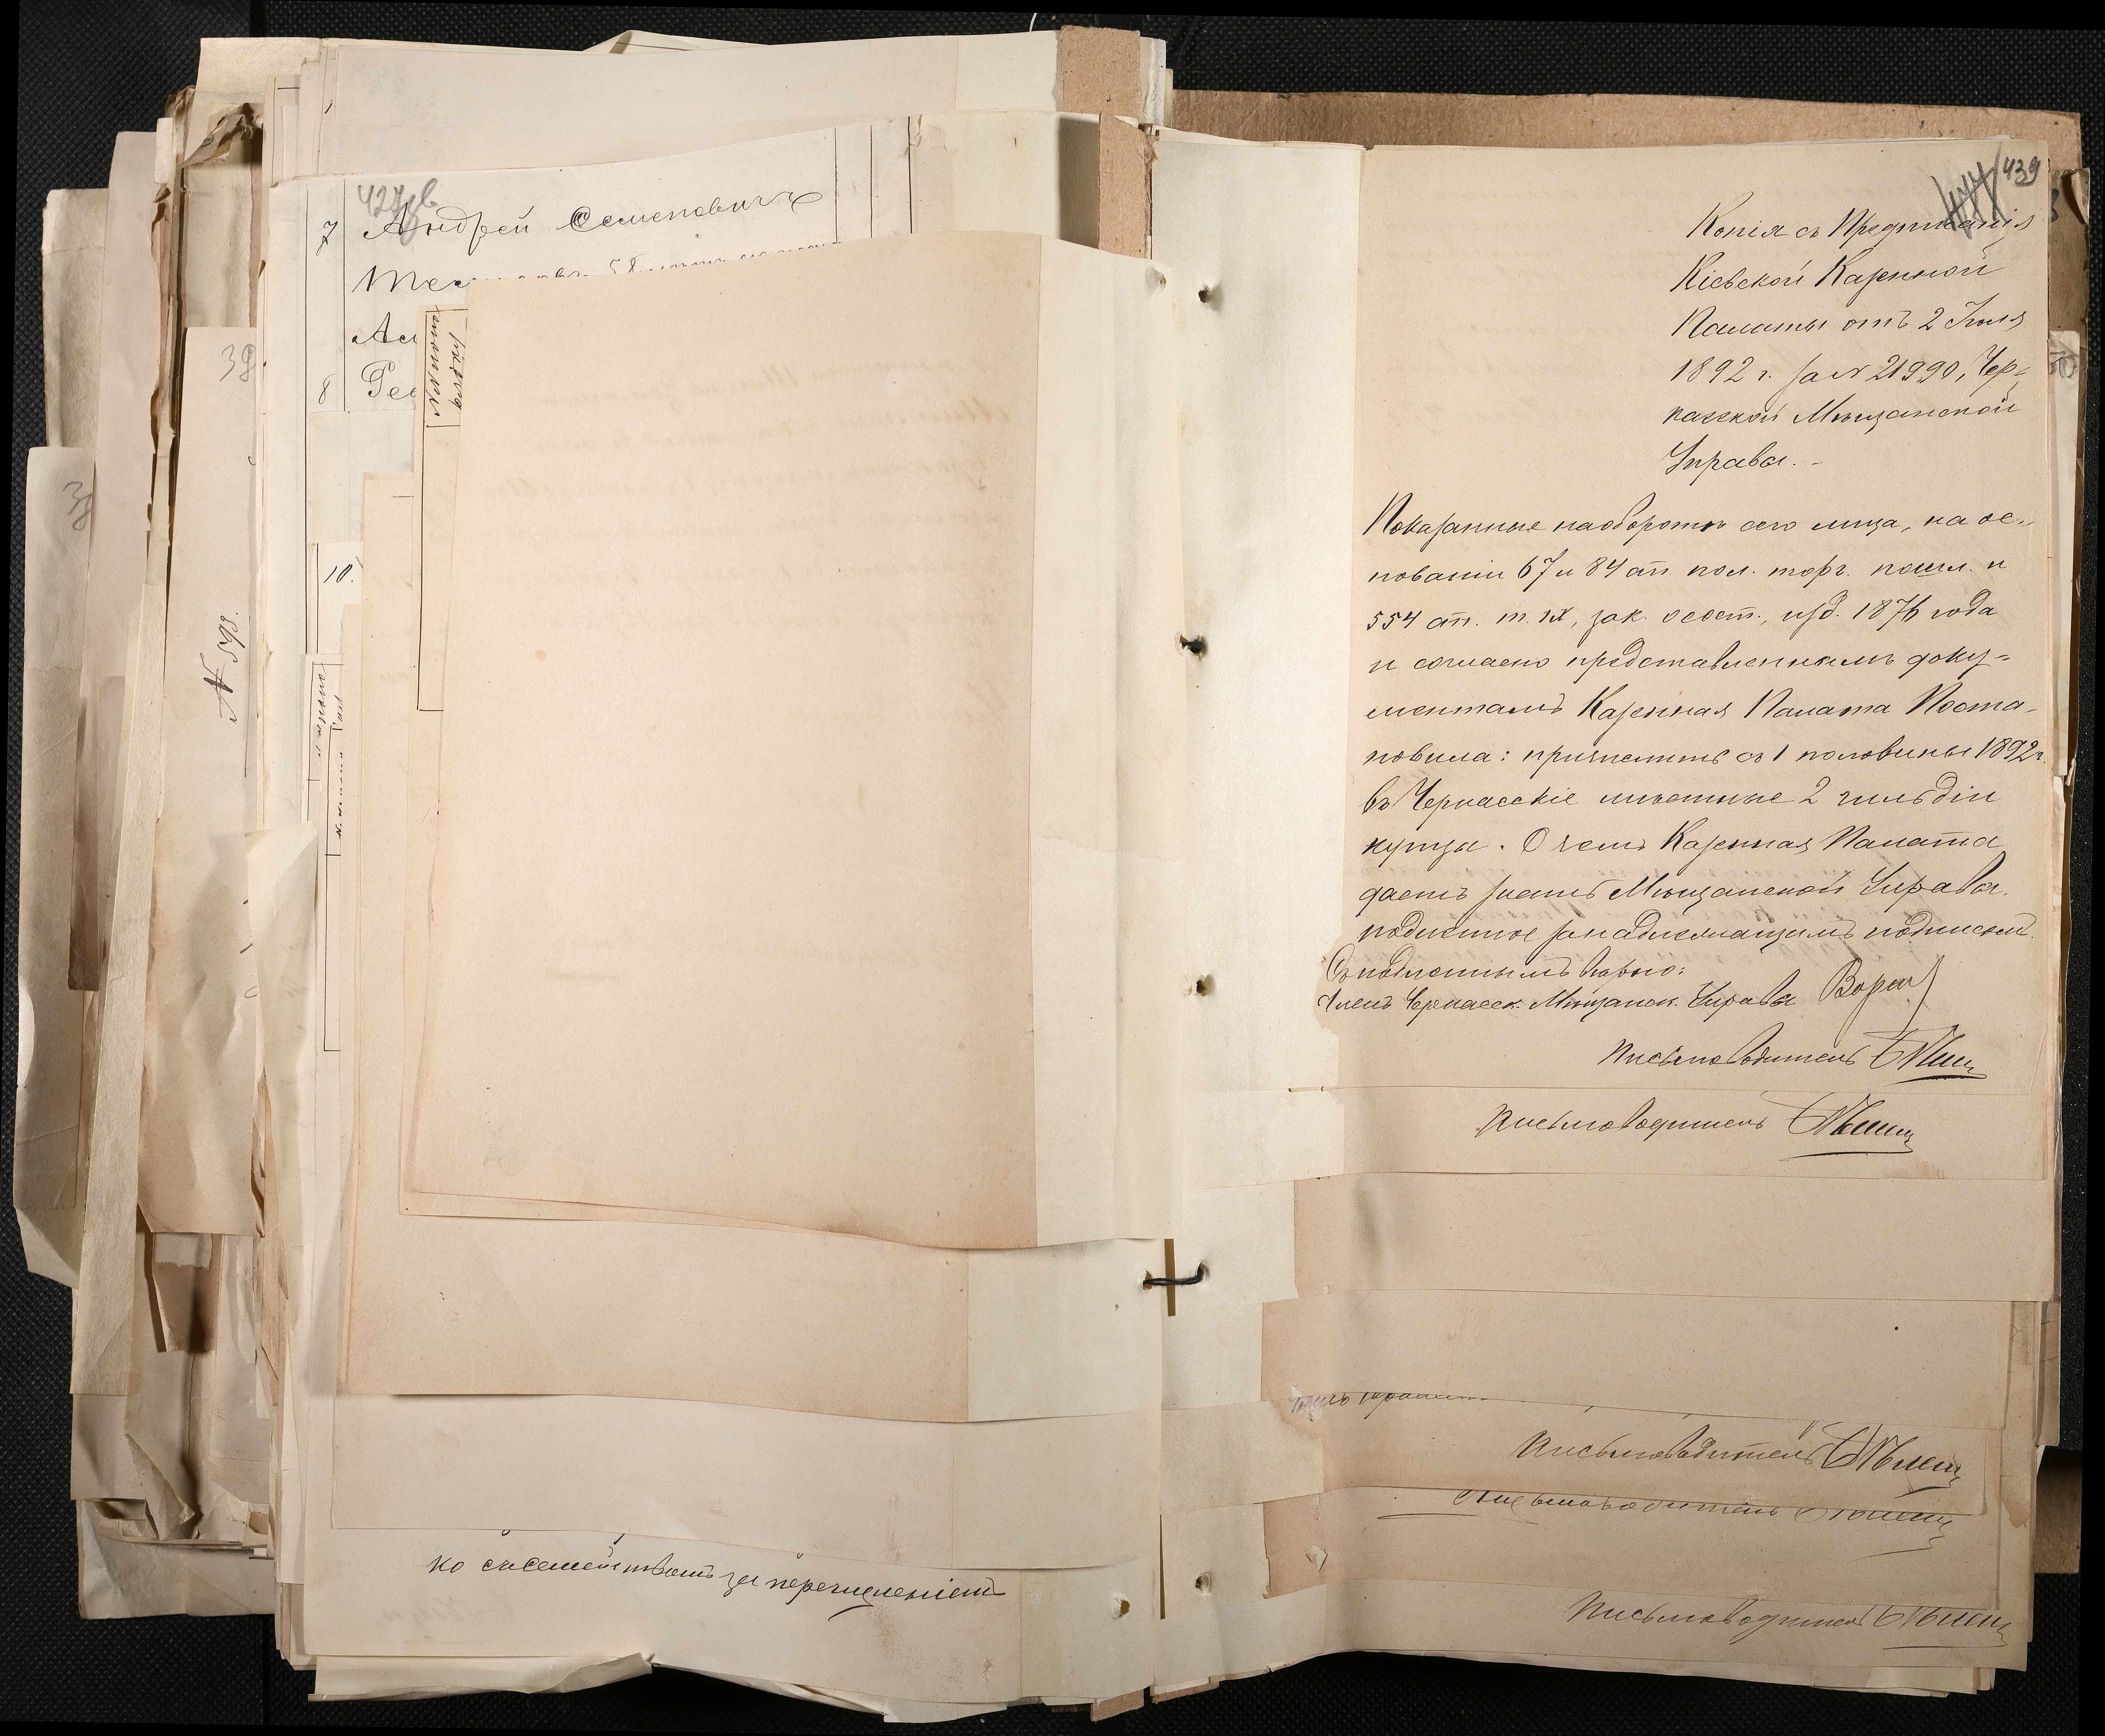 427 об
7 Андрей Семенович
8
10.
N 598.
39
439
Копія съ Предписанія
Кіевской Казенной
Палаты отъ 2 Іюля
1892 г. за N 21990, Чер-
касской Мѣщанской
Управѣ. -
Показанные наоборотѣ сего лица, на ос-
нованіи 67 и 84 ст. пол. торг. пошл. и
554 ст. т. IX, зак. о сост., изд. 1876 года
и согласно представленнымъ доку=
ментамъ Казенная Палата Поста-
новила: причислить съ 1 половины 1892 г.
въ Черкасскіе мѣстные 2 гильдіи
купцы. О чемъ Казенная Палата
даетъ знать Мѣщанской Управѣ.
подлинное за надлежащимъ подписомъ.
Съ подлиннымъ вѣрно:
Членъ Черкасск. Мѣщанск. Управы
Письмоводитель
Письмоводитель
Письмоводитель
Письмоводитель
Письмоводитель
ко съ семействомъ за перечисленіемъ